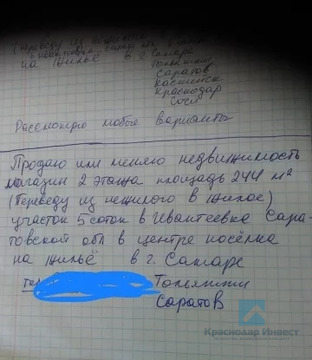 (переведу из нежилого
на жильё в г. Самаре
Тольятти
Саратов
Каспийск
Краснодар
Сочи
Рассмотрю любые варианты
Продаю или меняю недвижимость
магазин 2 этажа площадь 244 м²
(переведу из нежилого в жилое)
участок 5 соток в Ивантеевка Сара-
товской обл в центре посёлка
на жильё в г. Самаре
тел Тольятти
Саратов
Краснодар Инвест